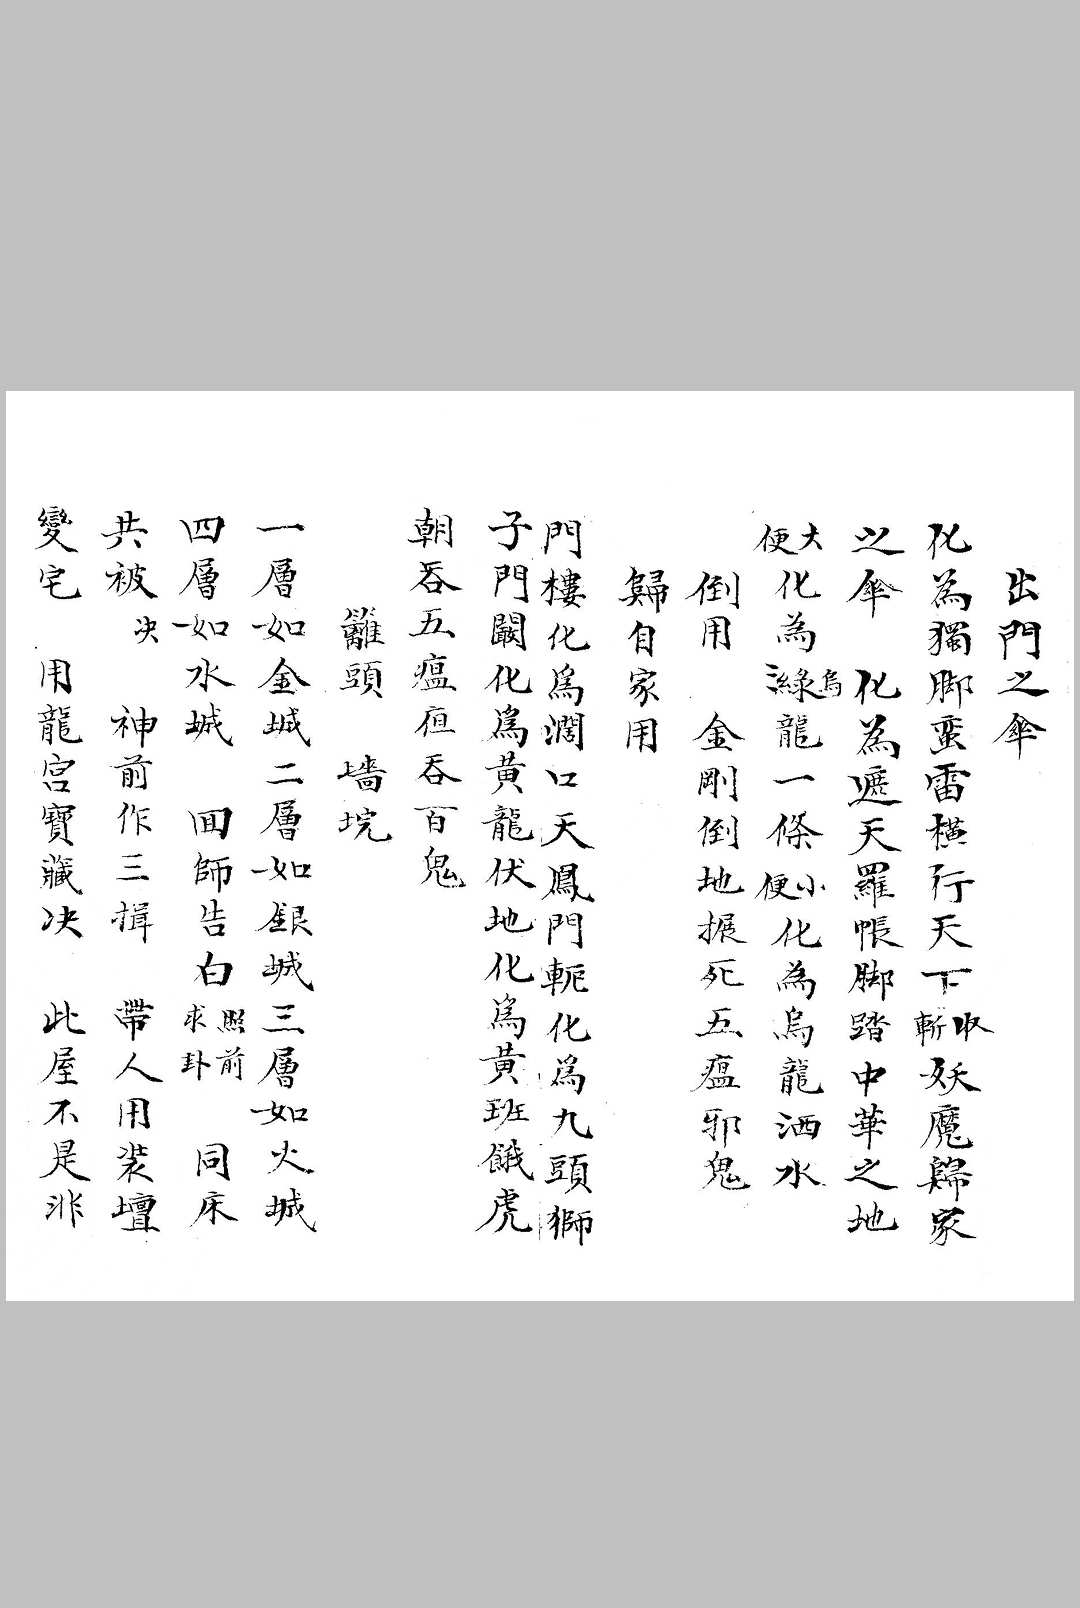 出門之傘
化為獨脚蛮雷橫行天下收斬妖魔歸家
之傘 化為遮天羅帳脚踏中華之地
大便化為烏綠龍一條小便化為烏龍洒水
倒用 金剛倒地振死五瘟邪鬼
歸自家用
門樓化爲濶口天鳳門軛化爲九頭獅
子門闞化爲黃龍伏地化爲黃班餓虎
朝吞五瘟夜吞百鬼
籬頭 墻垸
一層如金城二層如銀城三層如火城
四層如水城 回師告白照前求卦 同床
共被决 神前作三揖 帶人用裝壇
變宅 用龍宮寶藏决 此屋不是非